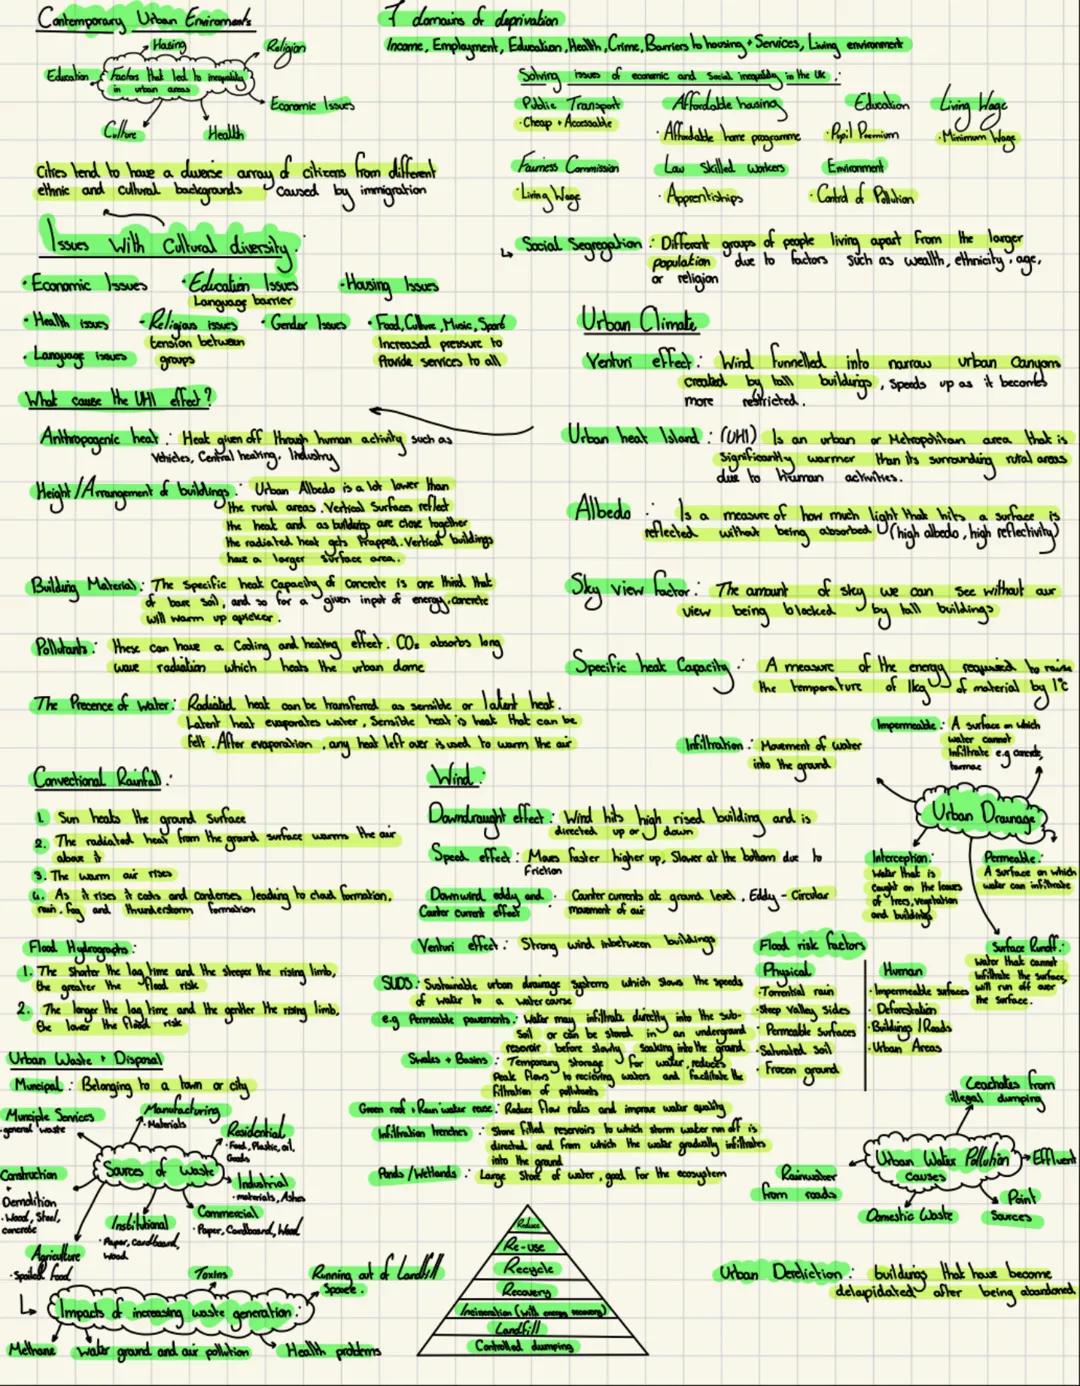 Contemporary Urban Enviroments
Hasing
Religion
Education
Factors that led to inequality
in urban areas
Economic Issues
Culture
Health
Cities tend to have a diverse array of citizens from different
ethnic and cultural backgrounds caused by immigration
7 domains of deprivation
Income, Employment, Education, Health, Crime, Barriers to housing + Services, Living environment
Solving issues of economic and Social inequality in the UK :
Public Transport
· Cheap + Accessable
Affordable housing
· Affordable home programme
Education
· Pupil Premium
Living Wage
· Minimum Wage
Fairness Commission
· Living Wage
Low Skilled workers
· Apprentiships
Environment
· Control of Pollution
Social Segregation : Different groups of people living apart from the larger
population due to factors such as wealth, ethnicity, age,
or religion
Issues With Cultural diversity :
· Economic Issues
· Education Issues
Language barrier
· Housing Issues
· Health issues
· Religious issues
tension between
groups
· Gender Issues
· Food, Culture, Music, Sport
Increased pressure to
Provide services to all
· Language issues
What cause the UHI effect?
Anthropogenic heat : Heat given off through human activity such as
Vehicles, Central heating, Industry
Height/Arrangement of buildings : Urban Albedo is a lot lower than
the rural areas. Vertical Surfaces reflect
the heat and as buildings are close together
the radiated heat gets trapped. Vertical buildings
have a larger surface area.
Building Material : The Specific heat Capacity of Concrete is one third that
of bare soil, and so for a given input of energy, concrete
will warm up quicker.
Pollutants : these can have a Cooling and heating effect. CO2 absorbs long
wave radiation which heats the urban dome
The Precence of Water : Radiated heat can be transferred as sensible or latent heat.
Latent heat evaporates water, Sensible heat is heat that can be
felt. After evaporation, any heat left over is used to warm the air
Urban Climate
Venturi effect : Wind funnelled into narrow urban canyons
created by tall buildings, Speeds up as it becomes
more restricted.
Urban heat Island : (UHI) Is an urban or Metropolitan area that is
Significantly warmer than its surrounding rural areas
due to human activities.
Albedo : Is a measure of how much light that hits a surface is
reflected without being absorbed (high albedo, high reflectivity)
Sky view factor : The amount of sky we can see without our
view being blocked by tall buildings
Specific heat Capacity : A measure of the energy required to raise
the temperature of 1kg of material by 1°C
Infiltration : Movement of water
into the ground
Impermeable : A surface on which
water cannot
infiltrate e.g concrete,
tarmac
Urban Drainage
Interception :
Water that is
caught on the leaves
of trees, vegetation
and buildings
Permeable :
A surface on which
water can infiltrate
Surface Runoff :
water that cannot
infiltrate the surface,
will run off over
the surface.
Convectional Rainfall :
1. Sun heats the ground surface
2. The radiated heat from the ground surface warms the air
above it
3. The warm air rises
4. As it rises it cools and condenses leading to cloud formation,
rain, fog and thunderstorm formation
Wind :
Downdraught effect : Wind hits high rised building and is
directed up or down
Speed effect : Moves faster higher up, Slower at the bottom due to
Friction
Downwind, eddy and
Counter current effect : Counter currents at ground level, Eddy - Circular
movement of air
Venturi effect : Strong wind inbetween buildings
Flood Hydrographs :
1. The Shorter the lag time and the steeper the rising limb,
the greater the flood risk
2. The longer the lag time and the genther the rising limb,
the lower the flood risk
SUDS : Sustainable urban drainage systems which slows the speeds
of water to a water course
e.g Permeable pavements : Water may infiltrate directly into the sub-
Soil or can be stored in an underground
reservoir before slowly soaking into the ground
Swales + Basins : Temporary storage for water, reduces
Peak flows to recieving waters and facilitate the
filtration of pollutants
Green roof + Rain water reuse : Reduce flow rates and improve water quality
Infiltration trenches : Stone filled reservoirs to which storm water run off is
directed and from which the water gradually infiltrates
into the ground
Ponds/Wetlands : Large Store of water, good for the ecosystem
Flood risk factors
Physical
· Torrential rain
· Steep Valley Sides
· Permeable Surfaces
· Saturated Soil
· Frozen ground
Human
· Impermeable surfaces
· Deforestation
· Buildings/Roads
· Urban Areas
Urban Waste + Disposal
Municipal : Belonging to a town or city
Sources of Waste
Municiple Services
· general waste
Manufacturing
· Materials
Residential
· Food, Plastic, oil,
Goods
Industrial
· materials, Ashes
Commercial
· Paper, Cardboard, Wood
Institutional
· Paper, cardboard,
wood
Agriculture
· Spoiled food
Construction
+
Demolition
· Wood, Steel,
concrete
Impacts of increasing waste generation :
Toxins
Running out of Landfill
Space.
Methane
Water ground and air pollution
Health problems
Reduce
Re-use
Recycle
Recovery
Incineration (with energy recovery)
Landfill
Controlled dumping
Urban Water Pollution
causes
Leachates from
illegal dumping
Effluent
Point
Sources
Domestic Waste
Rainwater
from roads
Urban Dereliction : buildings that have become
delapidated after being abandoned